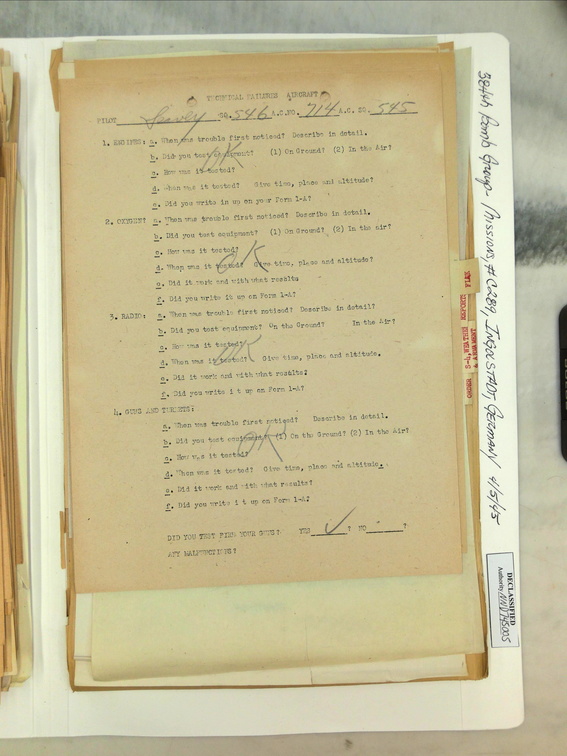 TECHNICAL FAILURES AIRCRAFT
PILOT SQ. 546 A.C.NO. 714 A.C. SO. 545
1. ENGINES: a. When was trouble first noticed? Describe in detail.
b. Did you test equipment? (1) On Ground? (2) In the Air?
OK
c. How was it tested?
d. When was it tested? Give time, place and altitude?
e. Did you write in up on your Form 1-A?
2. OXYGEN? a. When was trouble first noticed? Describe in detail.
b. Did you test equipment? (1) On Ground? (2) In the air?
c. How was it tested?
OK
d. When was it tested? Give time, place and altitude?
e. Did it work and with what results
f. Did you write it up on Form 1-A?
3. RADIO: a. When was trouble first noticed? Describe in detail?
b. Did you test equipment? On the Ground? In the Air?
c. How was it tested?
OK
d. When was it tested? Give time, place and altitude.
e. Did it work and with what results?
f. Did you write i t up on Form 1-A?
4. GUNS AND TURRETS:
a. When was trouble first noticed? Describe in detail.
b. Did you test equipment? (1) On the Ground? (2) In the Air?
OK
c. How was it tested?
d. When was it tested? Give time, place and altitude.
e. Did it work and with what results?
f. Did you write i t up on Form 1-A?
DID YOU TEST FIRE YOUR GUNS? YES ✓ ? NO ?
ANY MALFUNCTIONS?
384th Bomb Group- Missions, #C289, INGOLSTADT, GERMANY 4/5/45
S-4, WEATHER REPORTS FLAK
ORDER & ARMAMENT
DECLASSIFIED
Authority NND 745005